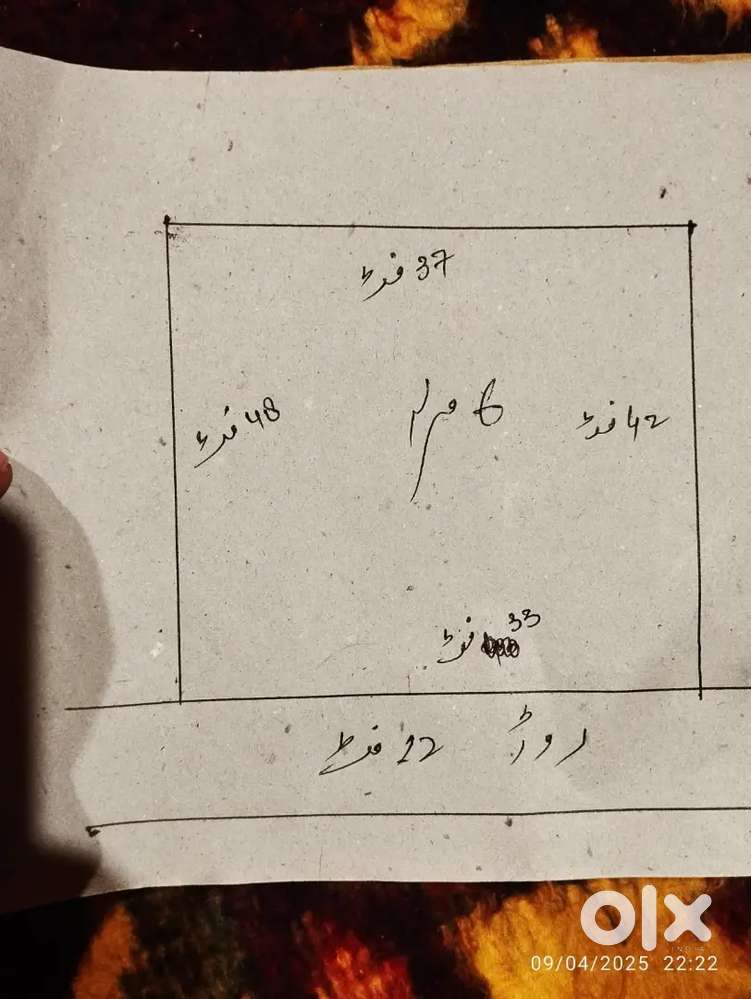 37 فٹ
48 فٹ
6 مرلہ
42 فٹ
33 فٹ
روڈ 12 فٹ
olx
INDIA
09/04/2025 22:22